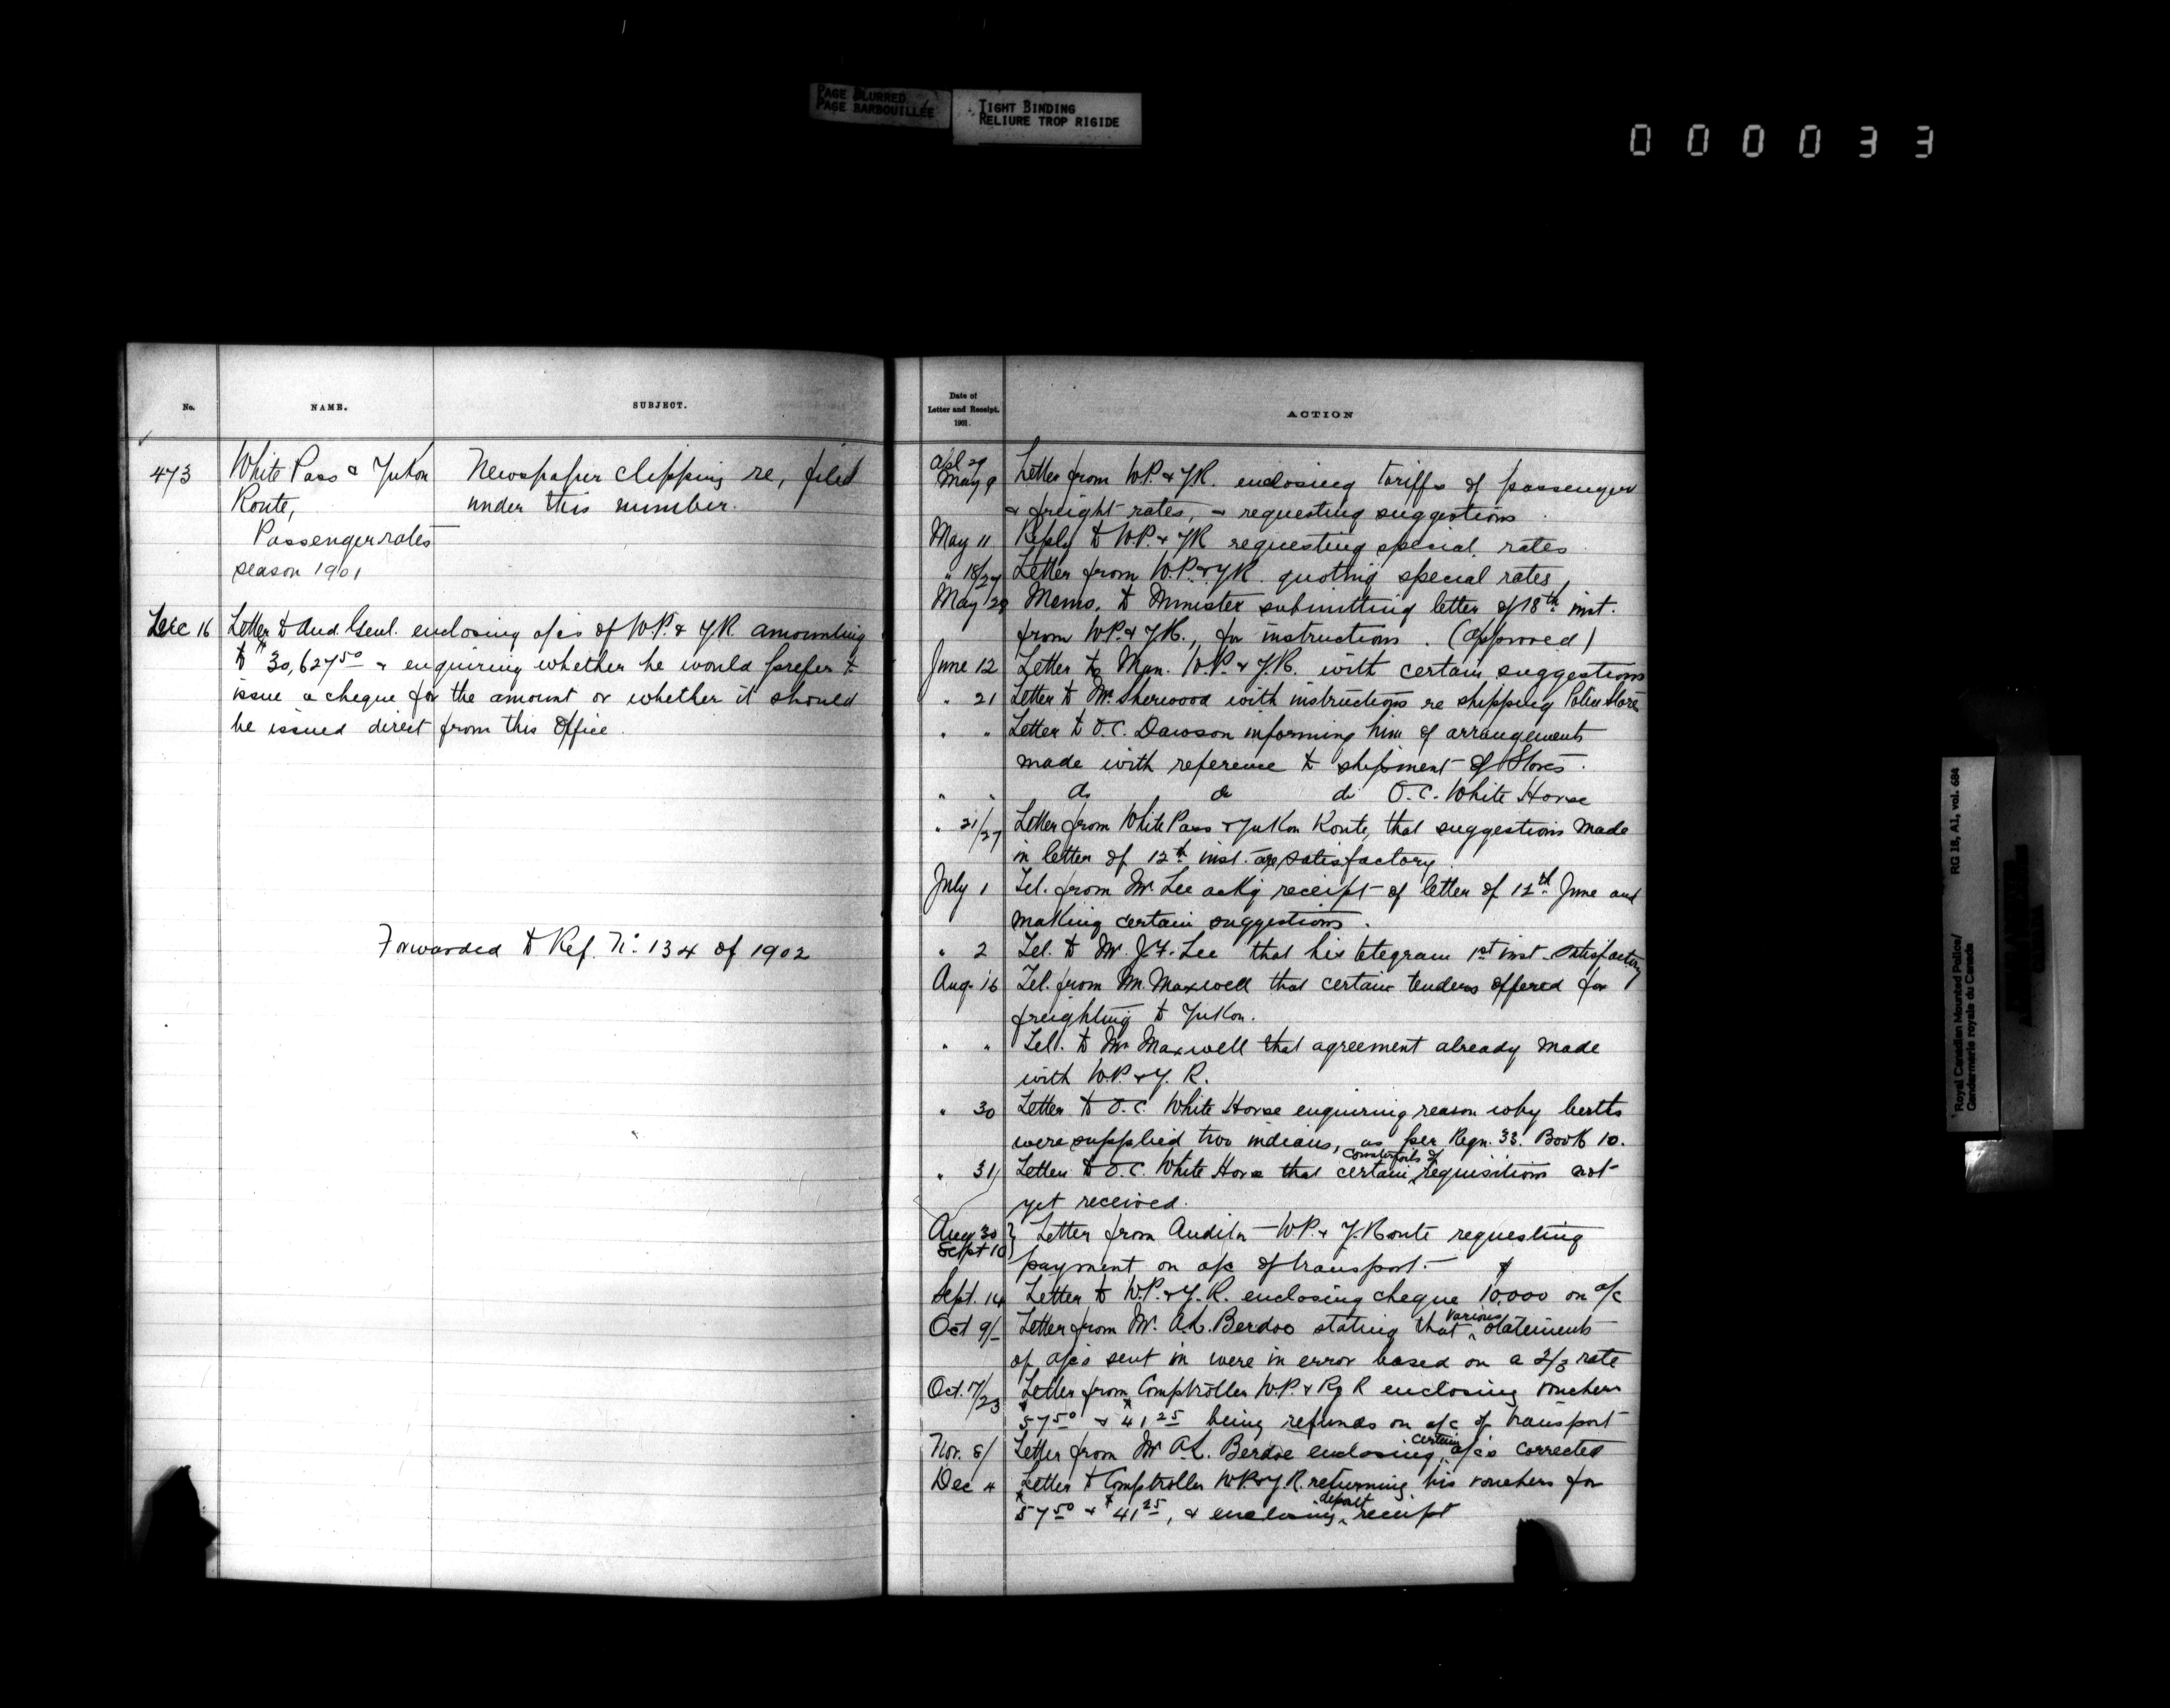 PAGE BLURRED
PAGE BARBOUILLÉE
TIGHT BINDING
RELIURE TROP RIGIDE
000033
No. NAME. SUBJECT.
473 White Pass & Yukon Newspaper clipping re, filed
Route, under this number.
Passenger rates
season 1901
Dec 16 Letter to Aud. Genl. enclosing a/cs of W.P. & Y.R. amounting
to $30,627.50 & enquiring whether he would prefer to
issue a cheque for the amount or whether it should
be issued direct from this Office.
Forwarded to Ref. No. 134 of 1902
Date of
Letter and Receipt.
1901.
ACTION
Apl 29
May 9 Letter from W.P. & Y.R. enclosing tariffs of passenger
& freight rates, & requesting suggestions.
May 11 Reply to W.P. & Y.R. requesting special rates
" 18/27 Letter from W.P. & Y.R. quoting special rates,
May 28 Memo. to Minister submitting letter of 18th inst.
from W.P. & Y.R., for instructions. (Approved)
June 12 Letter to Man. W.P. & Y.R. with certain suggestions
" 21 Letter to Mr. Sherwood with instructions re shipping Police Stores
" " Letter to O.C. Dawson informing him of arrangements
made with reference to shipment of Stores.
" " do do do O.C. White Horse
" 21/27 Letter from White Pass & Yukon Route, that suggestions made
in letter of 12th inst. are satisfactory.
July 1 Tel. from Mr. Lee ackg receipt of letter of 12th June and
making certain suggestions.
" 2 Tel. to Mr. J.F. Lee that his telegram 1st inst. satisfactory
Aug. 16 Tel. from Mr. Maxwell that certain tenders offered for
freighting to Yukon.
" " Tel. to Mr. Maxwell that agreement already made
with W.P. & Y.R.
" 30 Letter to O.C. White Horse enquiring reason why berths
were supplied two indians, as per Reqn. 33. Book 10.
" 31 Letter to O.C. White Horse that certain counterfoils of requisitions not
yet received.
Aug 30
Sept 10 } Letter from Auditor W.P. & Y. Route requesting
payment on a/c of transport.
Sept. 14 Letter to W.P. & Y.R. enclosing cheque $10,000 on a/c
Oct 9/ Letter from Mr. A.L. Berdoe stating that various statements
of a/cs sent in were in error based on a 2/3 rate
Oct. 17/23 Letter from Comptroller W.P. & Ry R enclosing vouchers
$57.50 & $41.25 being refunds on a/c of transport
Nov. 8/ Letter from Mr A.L. Berdoe enclosing certain a/cs corrected
Dec 4 Letter to Comptroller W.P. & Y.R. returning his vouchers for
$57.50 & $41.25, & enclosing depart receipt
Royal Canadian Mounted Police/
Gendarmerie royale du Canada
RG 18, A1, vol. 684